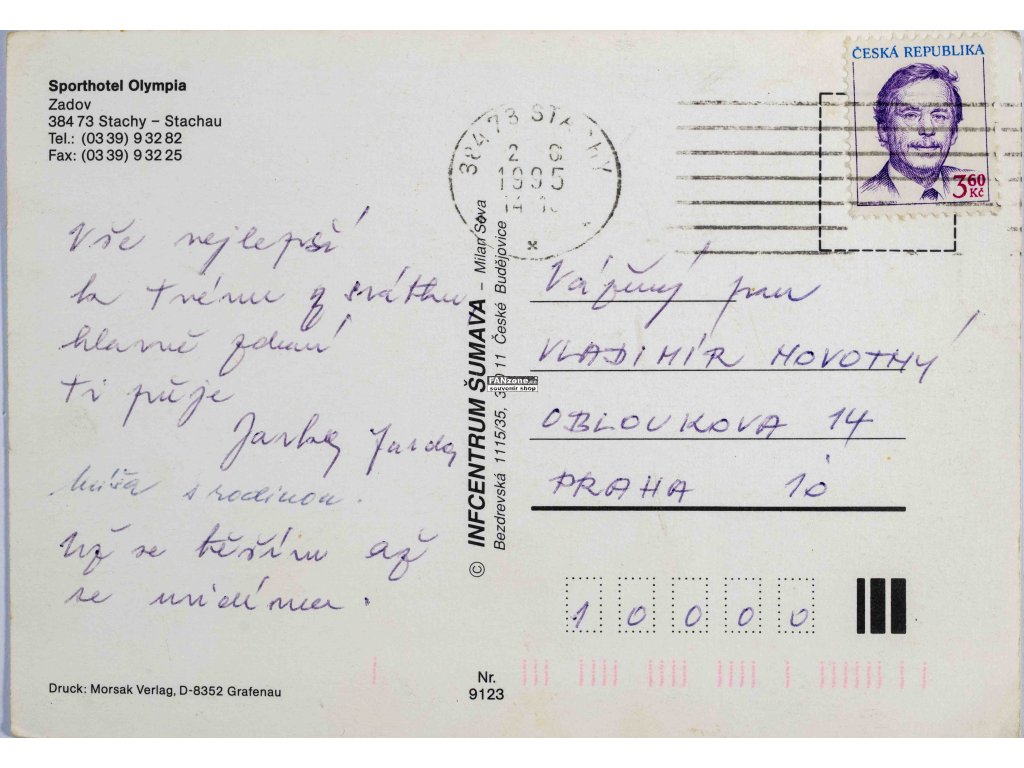 Sporthotel Olympia
Zadov
384 73 Stachy – Stachau
Tel.: (03 39) 9 32 82
Fax: (03 39) 9 32 25
Vše nejlepší
k tvému svátku
hlavně zdraví
ti přeje
Jarka Jarda
Míša s rodinou.
Už se těším až
se uvidíme.
Druck: Morsak Verlag, D-8352 Grafenau
Nr.
9123
© INFCENTRUM ŠUMAVA – Milan Sova
Bezdrevská 1115/35, 370 11 České Budějovice
FANzone.cz
souvenir shop
384 73 STACHY
1995
ČESKÁ REPUBLIKA
3 60
Kč
Vážený pan
VLADIMÍR NOVOTNÝ
OBLOUKOVA 14
PRAHA 10
1 0 0 0 0